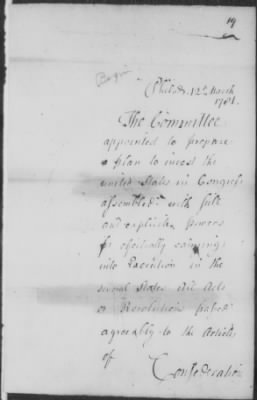 19
Begin
Philada. 12th March
1781.
The Committee
appointed to prepare
a plan to invest the
united States in Congress
assembled with full
and explicit powers
for effectually carrying
into Execution in the
several States all Acts
or Resolutions passed
agreeably to the Articles
of Confederation